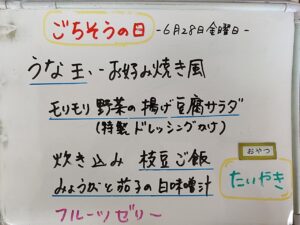 ごちそうの日 -6月28日金曜日-
うな玉‥お好み焼き風
モリモリ 野菜の揚げ豆腐サラダ
(特製ドレッシングかけ)
炊き込み 枝豆ご飯
みょうがと茄子の白味噌汁
フルーツゼリー
おやつ
たいやき